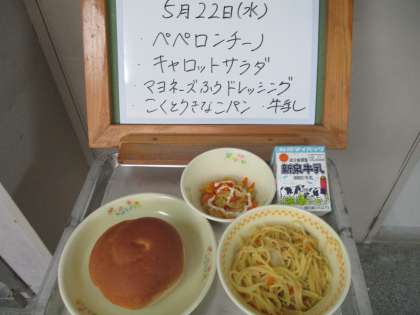 5月22日(水)
・ペペロンチーノ
・キャロットサラダ
マヨネーズふうドレッシング
・こくとうきなこパン ・牛乳
新泉牛乳